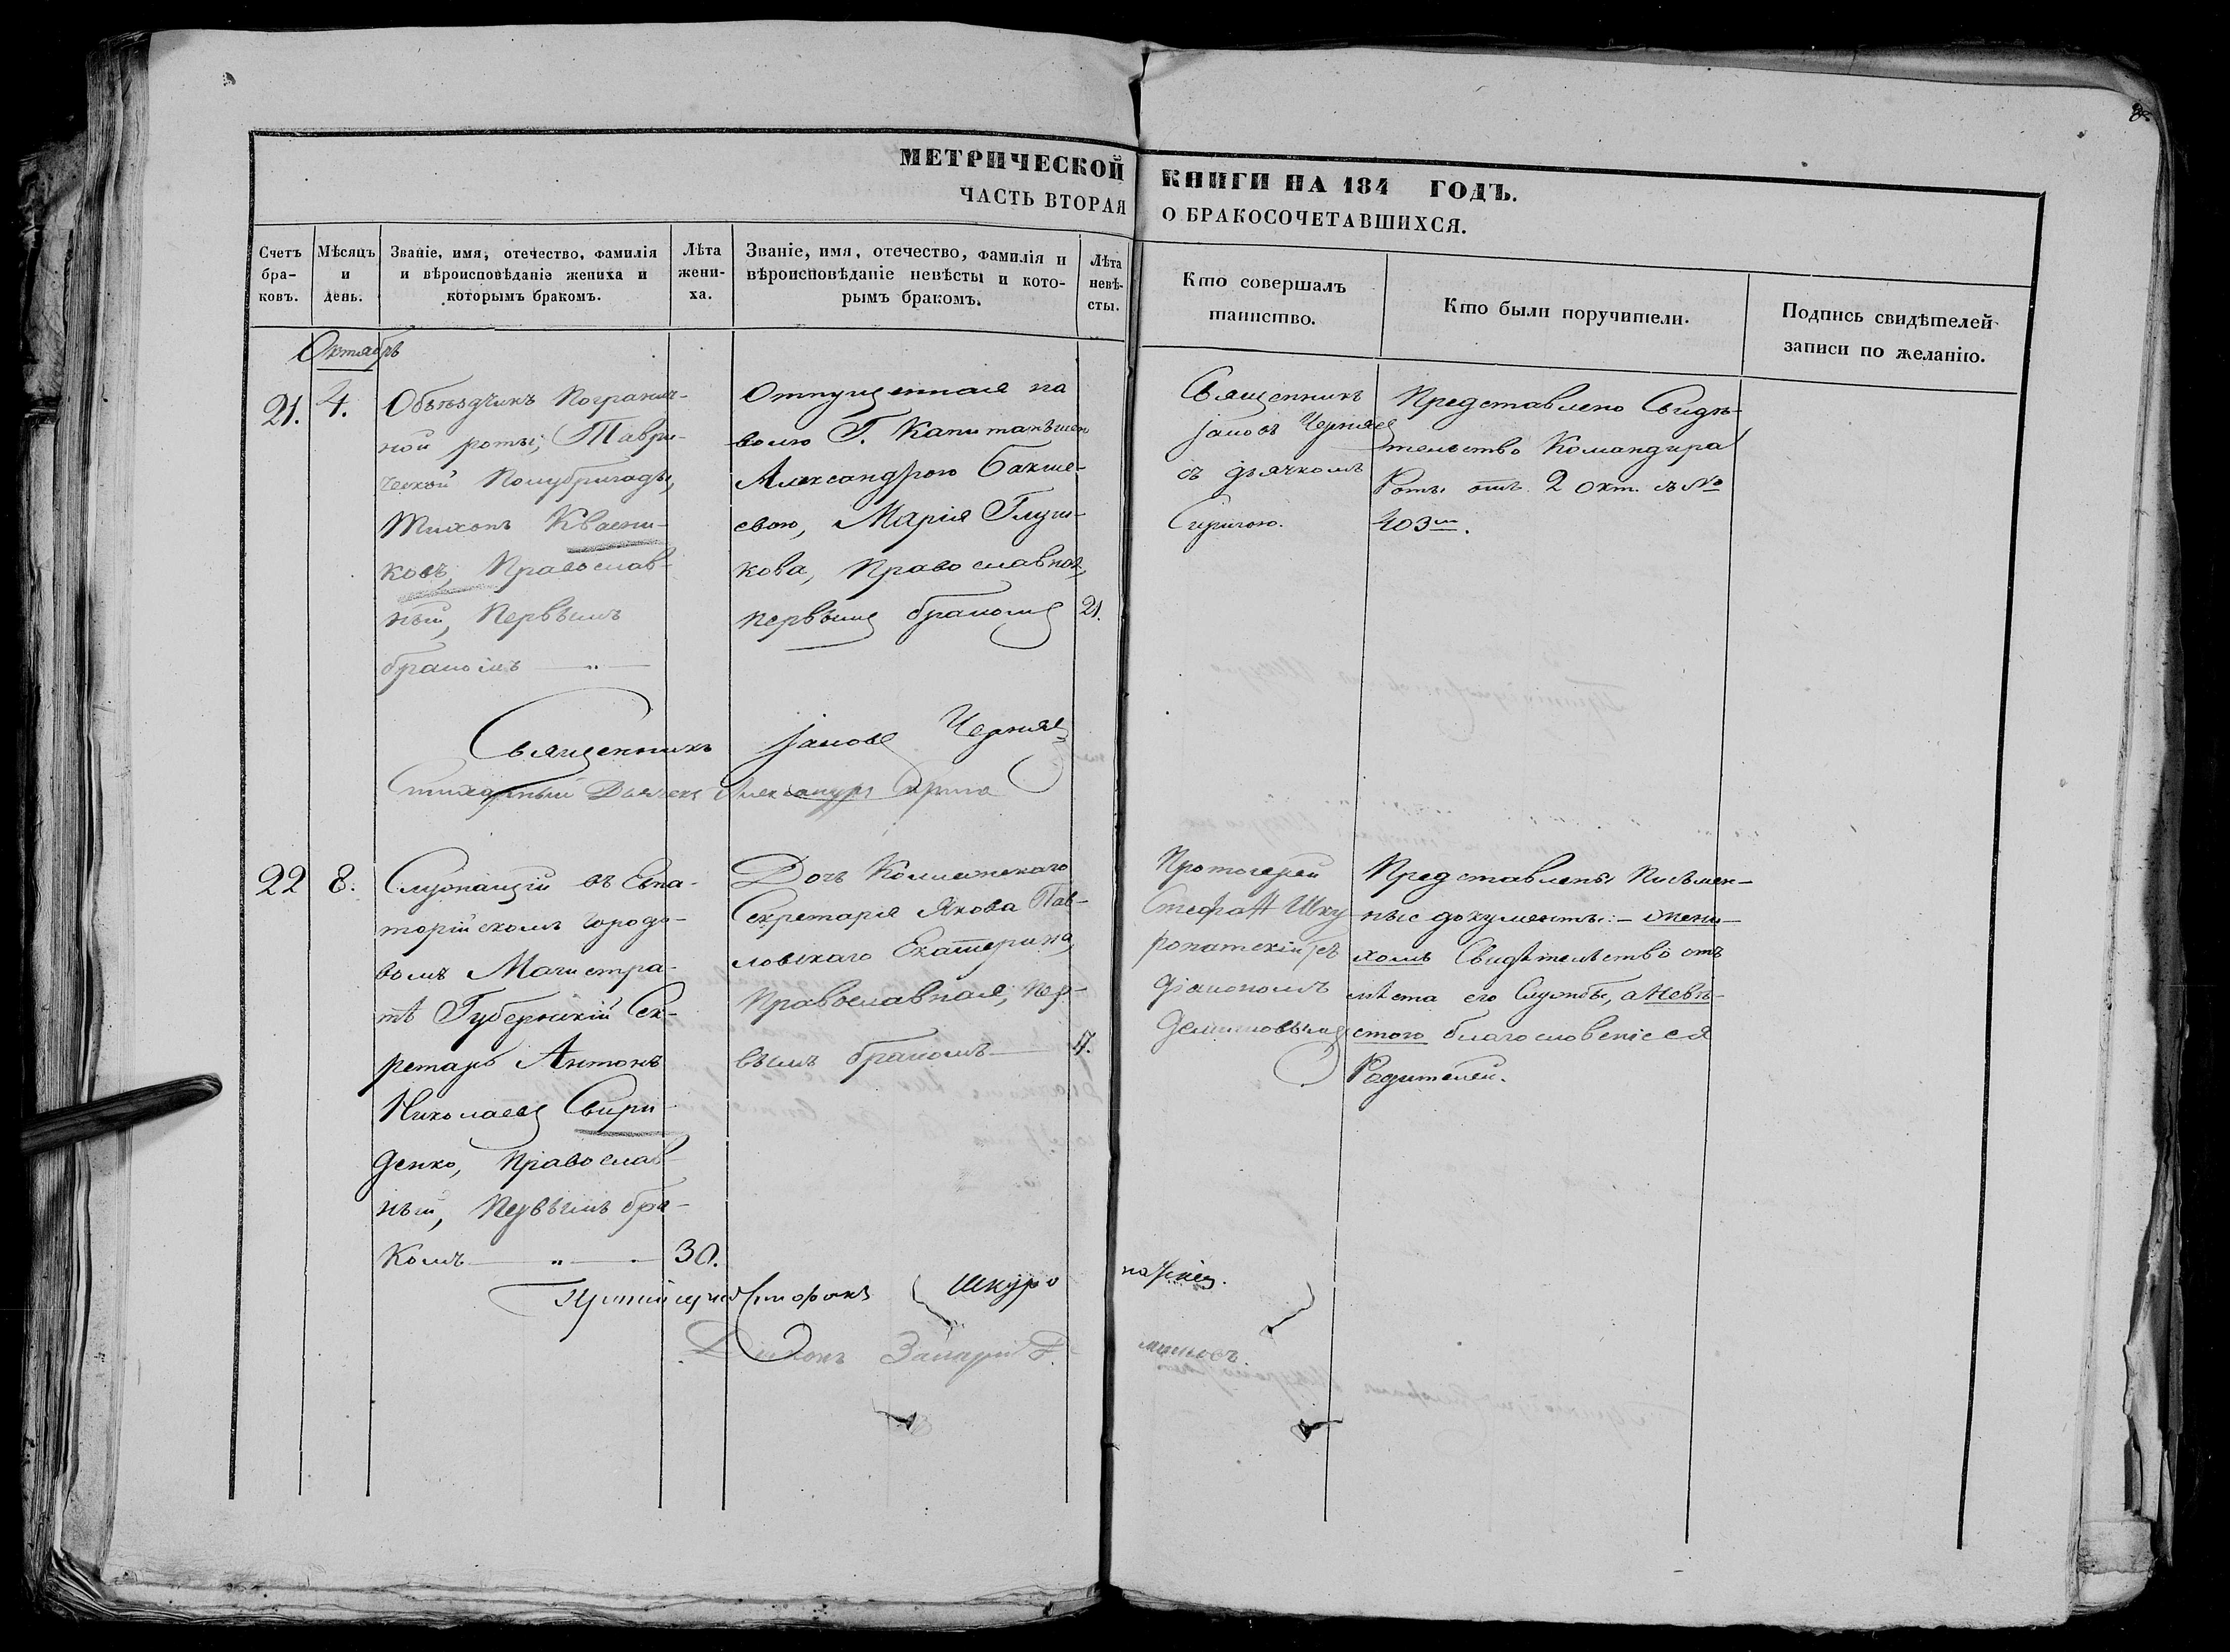 МЕТРИЧЕСКОЙ КНИГИ НА 184 ГОДЪ.
ЧАСТЬ ВТОРАЯ О БРАКОСОЧЕТАВШИХСЯ.
Счетъ бра-
ковъ.
Мѣсяцъ
и
день.
Званіе, имя, отечество, фамилія
и вѣроисповѣданіе жениха и
которымъ бракомъ.
Лѣта
жени-
ха.
Званіе, имя, отечество, фамилія и
вѣроисповѣданіе невѣсты и кото-
рымъ бракомъ.
Лѣта
невѣ-
сты.
Кто совершалъ
таинство.
Кто были поручители.
Подпись свидѣтелей
записи по желанію.
Октябрь
21.
4.
Объѣздчикъ Погранич-
ной роты, Таври-
ческой Полубригады,
Тихонъ Квасни-
ковъ, Православ-
ный, Первымъ
бракомъ
Отпущенная на
волю Г. Капитаншею
Александрою Бакше-
евою, Марія
кова, Православная,
первымъ бракомъ
21.
Священникъ
Іаковъ Черняев
съ дьячкомъ
Представлено Свидѣ-
тельство Командира
Роты отъ 2 окт. съ №
403м.
Священникъ Іаковъ Черняев
Стихарный Дьячекъ Александръ
22
8.
Служащій въ Евпа-
торійскомъ городо-
вомъ Магистра-
тѣ Губернскій Сек-
ретарь Антонъ
Николаевъ Свири-
денко, Православ-
ный, Первымъ бра-
комъ
30.
Дочь Коллежскаго
Секретаря Якова Пав-
ловскаго Екатерина,
Православная, пер-
вымъ бракомъ
Протоіерей
Стефанъ Шку
ропатскій съ
діакономъ
Представлены Письмен-
ные документы: – жени-
хомъ Свидѣтельство отъ
мѣста его Службы, а Невѣ-
стою благословеніе ея
Родителей.
Протоіерей Стефанъ Шкуро патскій.
Діаконъ Захарій